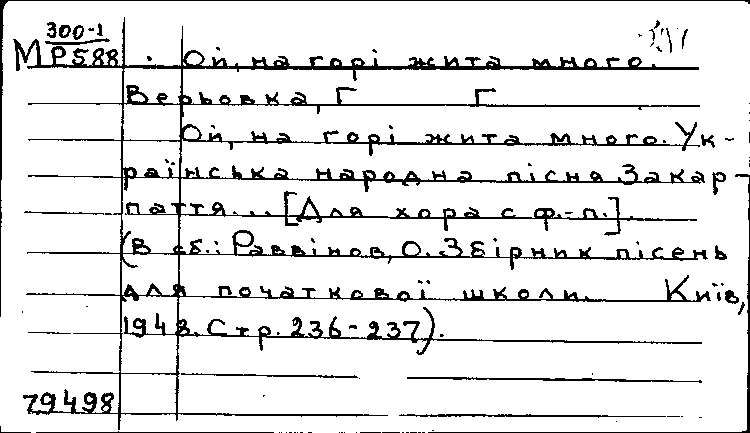 300-1
М Р588 . Ой, на горі жита много.
Верьовка, Г Г
Ой, на горі жита много. Ук-
раїнська народна пісня Закар-
паття... [Для хора с ф.-п.].
(В сб.: Раввінов, О. Збірник пісень
для початкової школи. Київ,
1948. Стр. 236-237).
79498